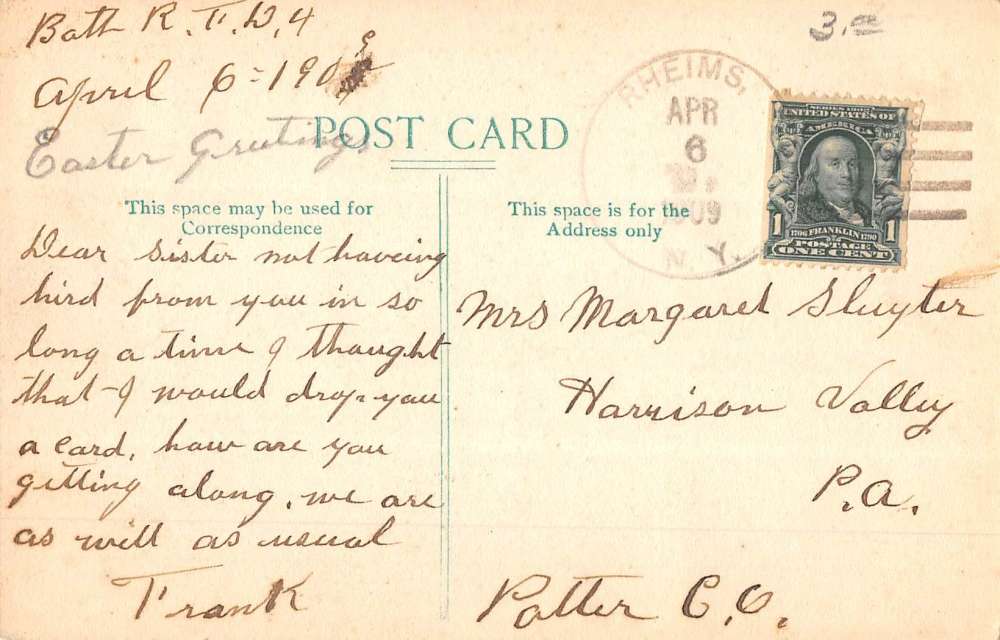 Bath R.F.D. 4
April 6 = 190
Easter Greetings
POST CARD
This space may be used for
Correspondence
Dear Sister not haveing
hird from you in so
long a time I thought
that I would drop you
a card, how are you
getting along, we are
as well as usual
Frank
3.00
RHEIMS,
APR
6
1909
N.Y.
SERIES 1902
UNITED STATES OF
AMERICA
1 1
1706 FRANKLIN 1790
POSTAGE
ONE CENT
This space is for the
Address only
Mrs Margaret Sluyter
Harrison Valley
P.a.
Potter C.O.